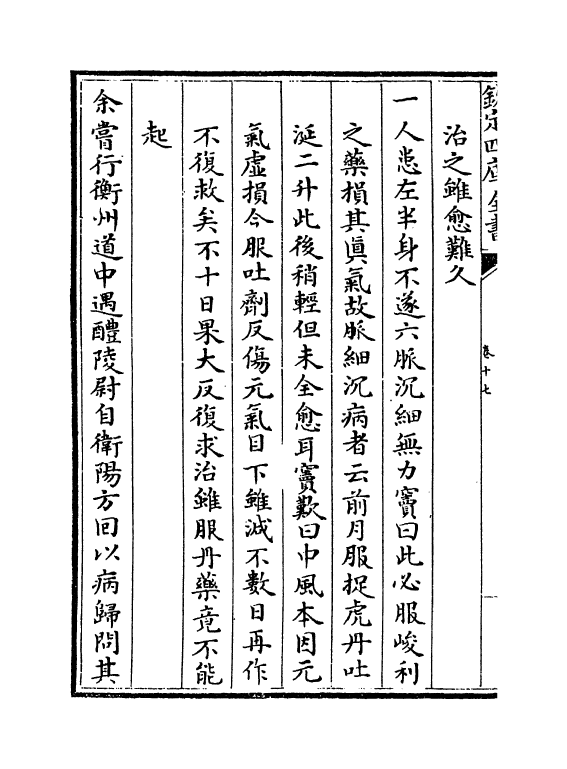 欽定四庫全書
卷十七
治之雖愈難久
一人患左半身不遂六脈沉細無力竇曰此必服峻利
之藥損其眞氣故脈細沉病者云前月服捉虎丹吐
涎二升此後稍輕但未全愈耳竇歎曰中風本因元
氣虛損今服吐劑反傷元氣目下雖減不數日再作
不復救矣不十日果大反復求治雖服丹藥竟不能
起
余嘗行衡州道中遇醴陵尉自衛陽方回以病歸問其